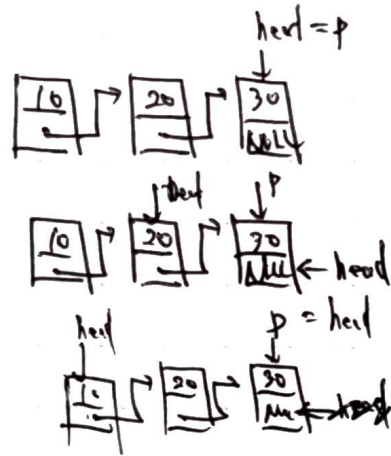 head = P
10 20 30
NULL
head P
10 20 30
NULL head
head P = head
20 30